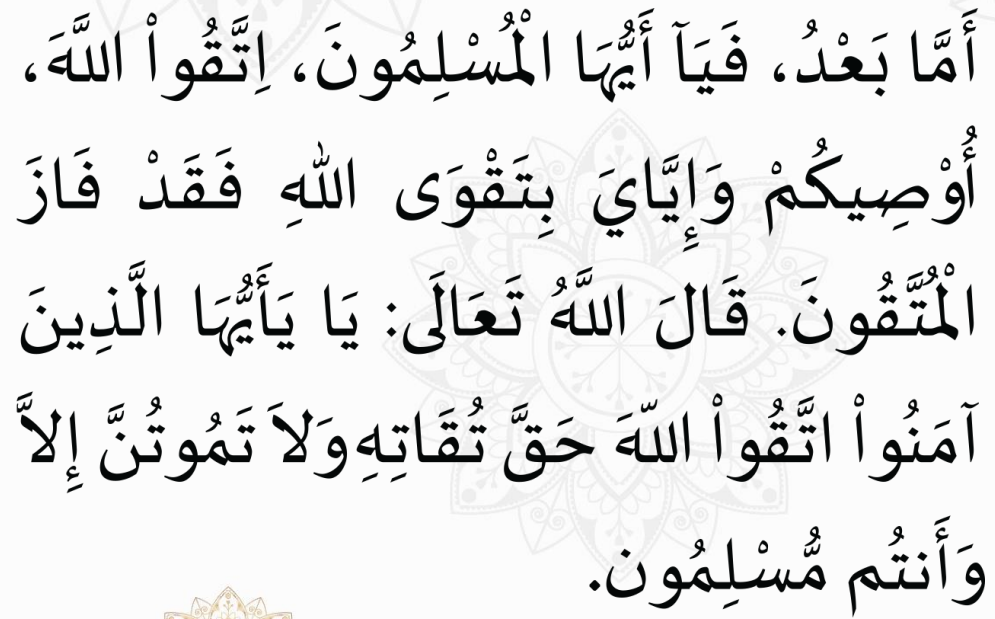 أَمَّا بَعْدُ، فَيَآ أَيُّهَا الْمُسْلِمُونَ، اِتَّقُواْ اللَّهَ،
أُوْصِيكُمْ وَإِيَّايَ بِتَقْوَى اللهِ فَقَدْ فَازَ
الْمُتَّقُونَ. قَالَ اللَّهُ تَعَالَى: يَا يَأَيُّهَا الَّذِينَ
آمَنُواْ اتَّقُواْ اللّهَ حَقَّ تُقَاتِهِ وَلاَ تَمُوتُنَّ إِلاَّ
وَأَنتُم مُّسْلِمُون.